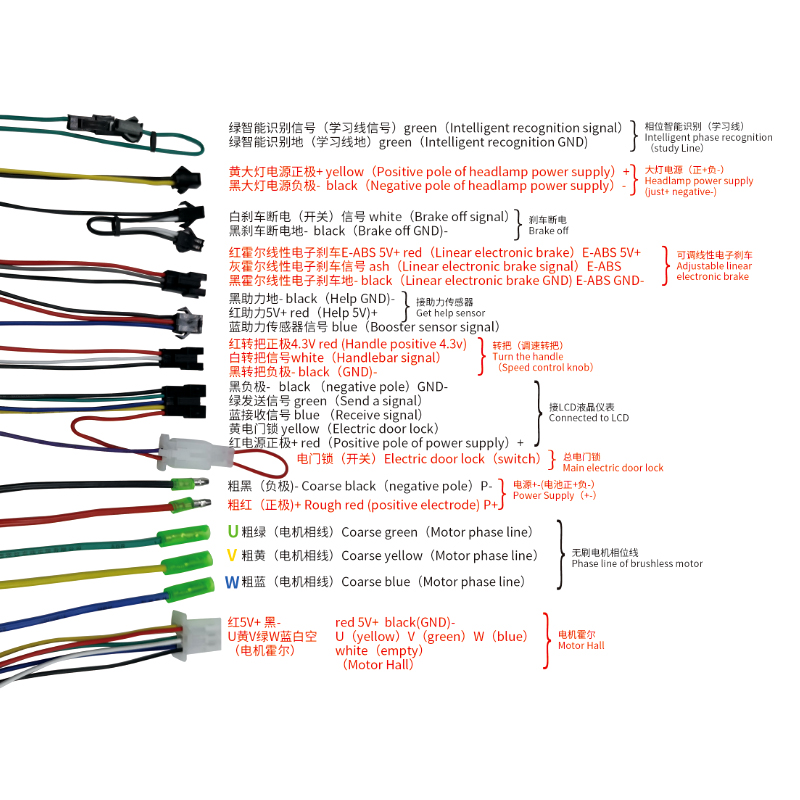 绿智能识别信号（学习线信号）green（Intelligent recognition signal）
绿智能识别地（学习线地）green（Intelligent recognition GND)
相位智能识别（学习线）
Intelligent phase recognition
（study Line）
黄大灯电源正极+ yellow（Positive pole of headlamp power supply）+
黑大灯电源负极- black（Negative pole of headlamp power supply）-
大灯电源（正+负-）
Headlamp power supply
(just+ negative-)
白刹车断电（开关）信号 white（Brake off signal）
黑刹车断电地- black（Brake off GND)-
刹车断电
Brake off
红霍尔线性电子刹车E-ABS 5V+ red（Linear electronic brake）E-ABS 5V+
灰霍尔线性电子刹车信号 ash（Linear electronic brake signal）E-ABS
黑霍尔线性电子刹车地- black（Linear electronic brake GND) E-ABS GND-
可调线性电子刹车
Adjustable linear
electronic brake
黑助力地- black（Help GND)-
红助力5V+ red（Help 5V)+
蓝助力传感器信号 blue（Booster sensor signal）
接助力传感器
Get help sensor
红转把正极4.3V red (Handle positive 4.3v)
白转把信号white（Handlebar signal）
黑转把负极- black（GND)-
转把（调速转把）
Turn the handle
（Speed control knob）
黑负极- black （negative pole）GND-
绿发送信号 green（Send a signal）
蓝接收信号 blue （Receive signal）
黄电门锁 yellow（Electric door lock）
红电源正极+ red（Positive pole of power supply）+
接LCD液晶仪表
Connected to LCD
电门锁（开关）Electric door lock（switch）
总电门锁
Main electric door lock
粗黑（负极)- Coarse black（negative pole）P-
粗红（正极)+ Rough red (positive electrode) P+
电源+-(电池正+负-）
Power Supply（+-）
U粗绿（电机相线）Coarse green（Motor phase line）
V 粗黄（电机相线）Coarse yellow（Motor phase line）
W粗蓝（电机相线）Coarse blue（Motor phase line）
无刷电机相位线
Phase line of brushless motor
红5V+ 黑- red 5V+ black(GND)-
U黄V绿W蓝白空 U（yellow）V（green）W（blue）
（电机霍尔） white（empty）
（Motor Hall）
电机霍尔
Motor Hall